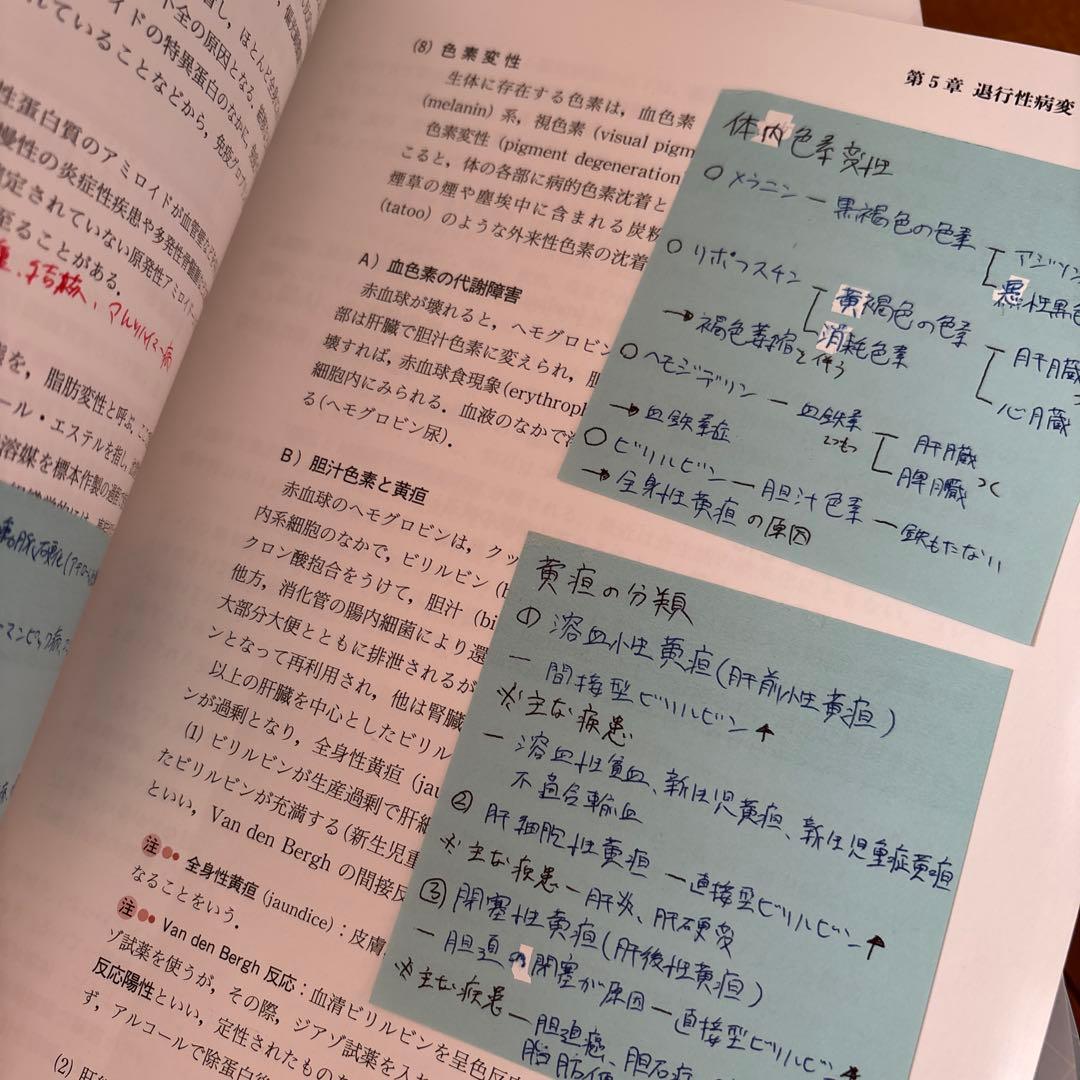 第5章 退行性病変
(8) 色素変性
生体に存在する色素は，血色素
(melanin) 系，視色素 (visual pigm
色素変性 (pigment degeneration
こると，体の各部に病的色素沈着と
煙草の煙や塵埃中に含まれる炭粉
(tatoo) のような外来性色素の沈着
A) 血色素の代謝障害
赤血球が壊れると，ヘモグロビン
部は肝臓で胆汁色素に変えられ，胆
壊すれば，赤血球貪食現象(erythroph
細胞内にみられる．血液のなかで溶
る(ヘモグロビン尿)．
B) 胆汁色素と黄疸
赤血球のヘモグロビンは，クッ
内系細胞のなかで，ビリルビン (b
クロン酸抱合をうけて，胆汁 (bi
他方，消化管の腸内細菌により還
大部分大便とともに排泄されるが
ンとなって再利用され，他は腎臓
以上の肝臓を中心としたビリル
ンが過剰となり，全身性黄疸 (jau
(1) ビリルビンが生産過剰で肝細
たビリルビンが充満する(新生児重
といい，Van den Bergh の間接反
注 全身性黄疸 (jaundice)：皮膚
なることをいう．
注 Van den Bergh 反応：血清ビリルビンを呈色反
ゾ試薬を使うが，その際，ジアゾ試薬を入れ
反応陽性といい，定性されたものを
ず，アルコールで除蛋白後
(2) 肝
体内色素変性
○ メラニン ー 黒褐色の色素
アジソン
悪性黒色
○ リポフスチン
黄褐色の色素
消耗色素
→ 褐色萎縮を伴う
肝臓
心臓
○ ヘモジデリン ー 血鉄素
→ 血鉄素症
肝臓
脾臓
○ ビリルビン ー 胆汁色素 ー 鉄もたない
→ 全身性黄疸の原因
黄疸の分類
① 溶血性黄疸(肝前性黄疸)
ー 間接型ビリルビン↑
※ 主な疾患
ー 溶血性貧血、新生児黄疸、新生児重症黄疸
不適合輸血
② 肝細胞性黄疸 ー直接型ビリルビン↑
※ 主な疾患ー肝炎、肝硬変
③ 閉塞性黄疸(肝後性黄疸)
ー 胆道の閉塞が原因ー直接型ビリルビン↑
※ 主な疾患ー胆道癌、胆石症
性蛋白質のアミロイドが血管壁など
慢性の炎症性疾患や多発性骨髄腫
定されていない原発性アミロイド
至ることがある．
結核、
を，脂肪変性と呼ぶ．
ール・エステルを指し，
溶媒を標本作製の過